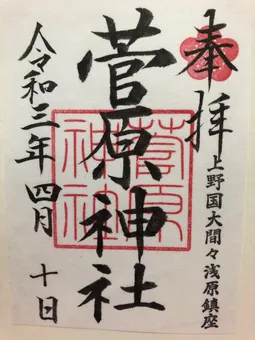 奉拝
上野国大間々浅原鎮座
菅原神社
菅原
神社
令和三年四月十日